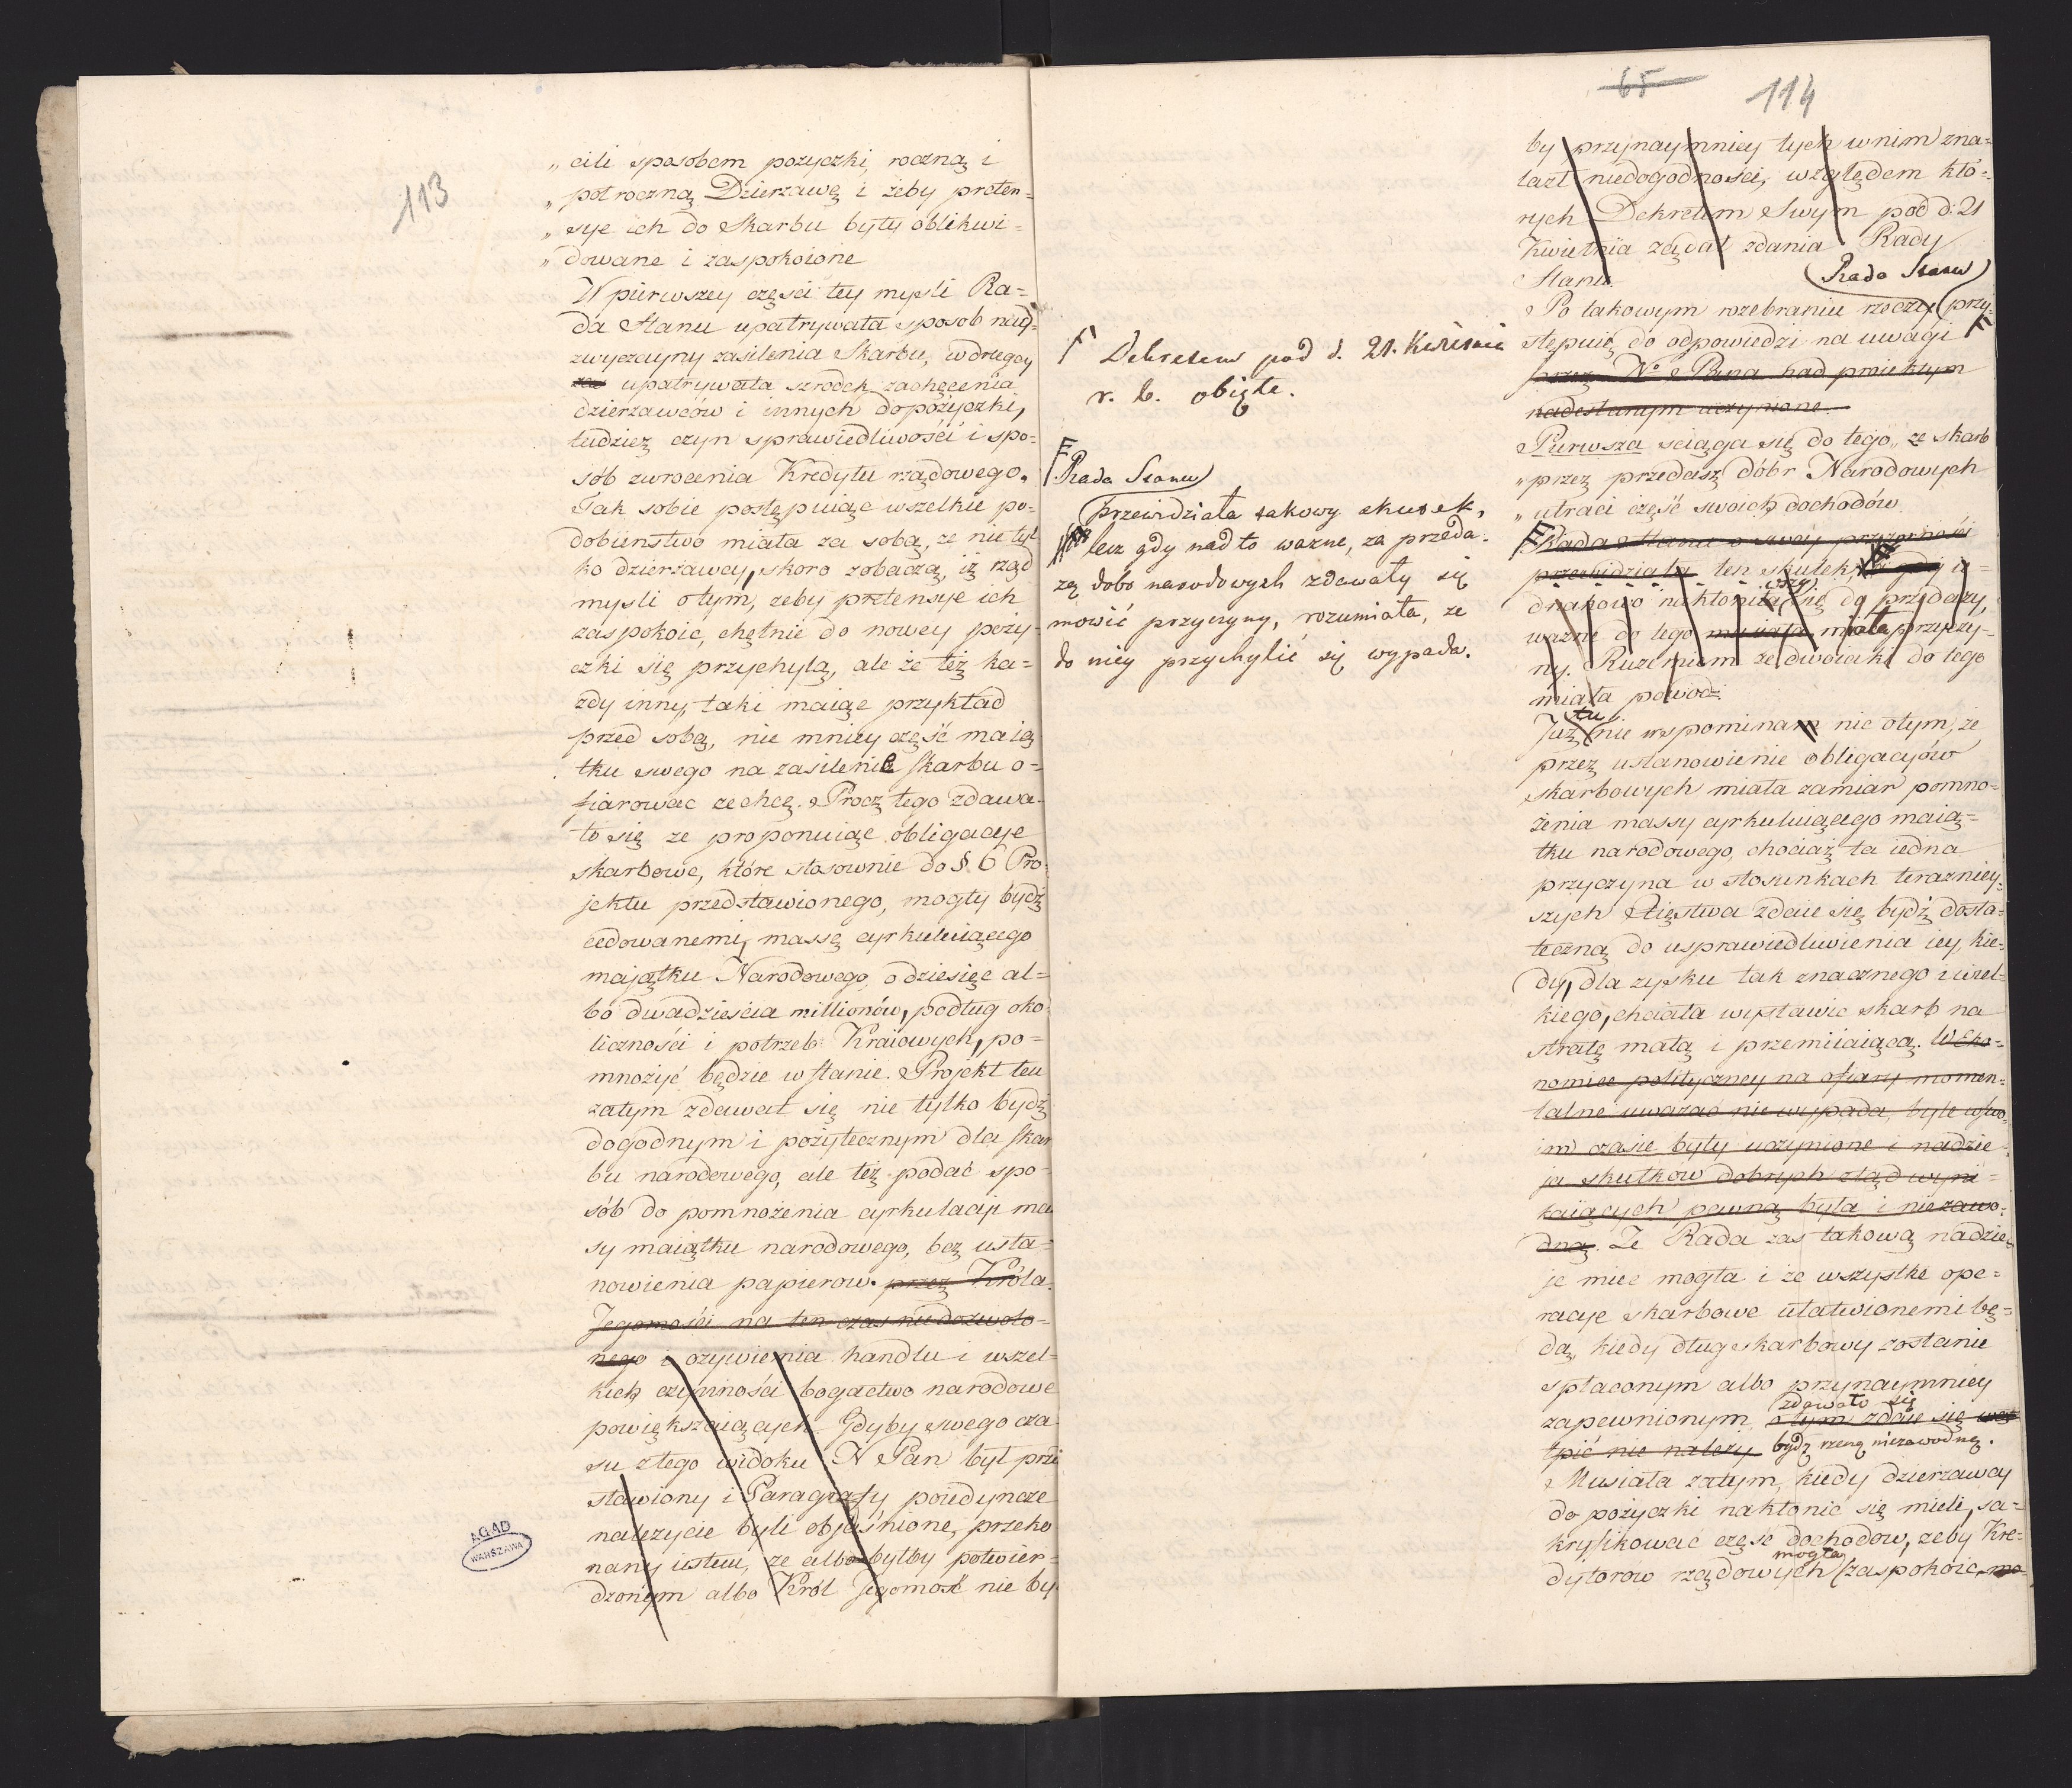 113
„ cili sposobem pożyczki, roczną i
„ pół roczną Dzierzawę i żeby preten-
„ sye ich do Skarbu były oblikwi-
„ dowane i zaspokoione
W pierwszey części tey mysli Ra-
da Stanu upatrywała sposob nad-
zwyczayny zasilenia Skarbu, w drugey
zaś upatrywała szrodek zachęcenia
dzierzawców i innych do pożyczki,
tudziez czyn sprawiedliwości i spo-
sób zwrocenia Kredytu rządowego.
Tak sobie postępuiąc wszelkie po-
dobienstwo miała za sobą, ze nie tyl-
ko dzierżawcy, skoro zobaczą, iż rząd
mysli o tym, zeby pretensye ich
zaspokoic, chętnie do nowey poży-
czki się przychylą, ale że też ka-
żdy inny, taki maiąc przykład
przed sobą, nie mniey część maią
tku swego na zasilenie skarbu o-
fiarować zechcę. Procz tego zdawa-
ło się ze proponuiąc obligacye
skarbowe, które stosownie do § 6 Pro-
jektu przedstawionego, mogły bydź
cedowanemi, massę cyrkuluiącego
majątku Narodowego, o dziesięc al-
bo dwadzieścia millionów, podług oko-
liczności i potrzeb Kraiowych, po-
mnożyć będzie w stanie. Projekt ten
zatym zdawał się nie tylko bydź
dogodnym i pożytecznym dla skar
bu narodowego, ale też podać spo-
sób do pomnożenia cyrkulacji ma
sy maiątku narodowego, bez usta-
nowienia papierow. przez Króla
Jegomości na ten czas niedozwolo-
nego i ożywienia handlu i wszel-
kich czynności bogactwo narodowe
powiększaiących. Gdyby swego cza
su z tego widoku N Pan był prze
stawiony i Paragrafy poiedyncze
należycie byli objaśnione, przeko
nany iestem, ze albo byłby potwier-
dzonym albo Król Jegomość nie by
AGAD
WARSZAWA
65 114
by przynaymniey tych w nim zna-
lazł niedogodności, względem któ-
rych Dekretem Swym pod d: 21
Kwietnia żądał zdania Rady
Stanu. Rada Stanu
Po takowym rozebraniu rzeczy przy-
stępuię do odpowiedzi na uwagi F
przez N° Pana nad proiektym
nadesłanym uczynione.
Pierwsza sciąga się do tego „ ze skarb
„ przez przedasz dóbr Narodowych
„ utraci część swoich dochodów
F Rada Stanu o swey przezorności
przewidziała ten skutek, i gdy ie-
dnakowo nakłoniła się do przedaży,
ważne do tego musiała miała przyczy-
ny. Rozumiem ze dwoiaki do tego
miała powod.
Już tu nie wspominam nic o tym, że
przez ustanowienie obligacyów
skarbowych miała zamiar pomno-
żenia massy cyrkuluiącego maią-
tku narodowego, chociaż ta iedna
przyczyna w stosunkach teraźniey-
szych Xięstwa zdaie się bydź dosta-
teczną do usprawiedliwienia iey, kie-
dy, dla zysku tak znacznego i wiel-
kiego, chciała wystawic skarb na
stratę małą i przemiiaiącą. W eko-
nomice polityczney na ofiary momen-
talne uważać nie wypada, byle w swo-
im czasie były uczynione i nadzie-
ja skutkow dobrych ztąd wyni-
kaiących pewną była i niezawo-
dną. Ze Rada zas takową nadzie-
je mieć mogła i ze wszystke ope-
racje skarbowe ułatwionemi bę-
dą, kiedy dług skarbowy zostanie
spłaconym albo przynaymniey
zdawało się
zapewnionym o tym zdaie się wąt
pić nie należy bydź rzeczą niezawodną.
Musiała zatym, kiedy dzierzawcy
do pożyczki nakłonic się mieli, sa-
kryfikować częsc dochodow, zeby Kre-
mogła
dytorow rządowych zaspokoic, mo-
F Dekretem pod d. 21. Kwietnia
r. b. obięte.
F
Rada Stanu
przewidziała takowy skutek,
lecz gdy nad to wazne, za przeda-
żą dobr narodowych zdawały się
mowić przyczyny, rozumiała, ze
do niey przychylić się wypada.